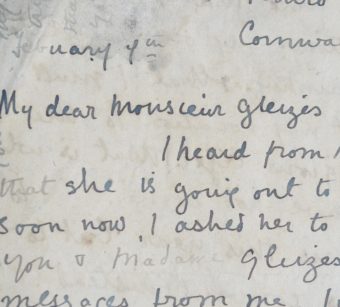 Cornwa
uary 7th
My dear Monsieur Gleizes
I heard from
that she is going out to
soon now. I asked her to
you & Madame Gleizes
messages from me. I